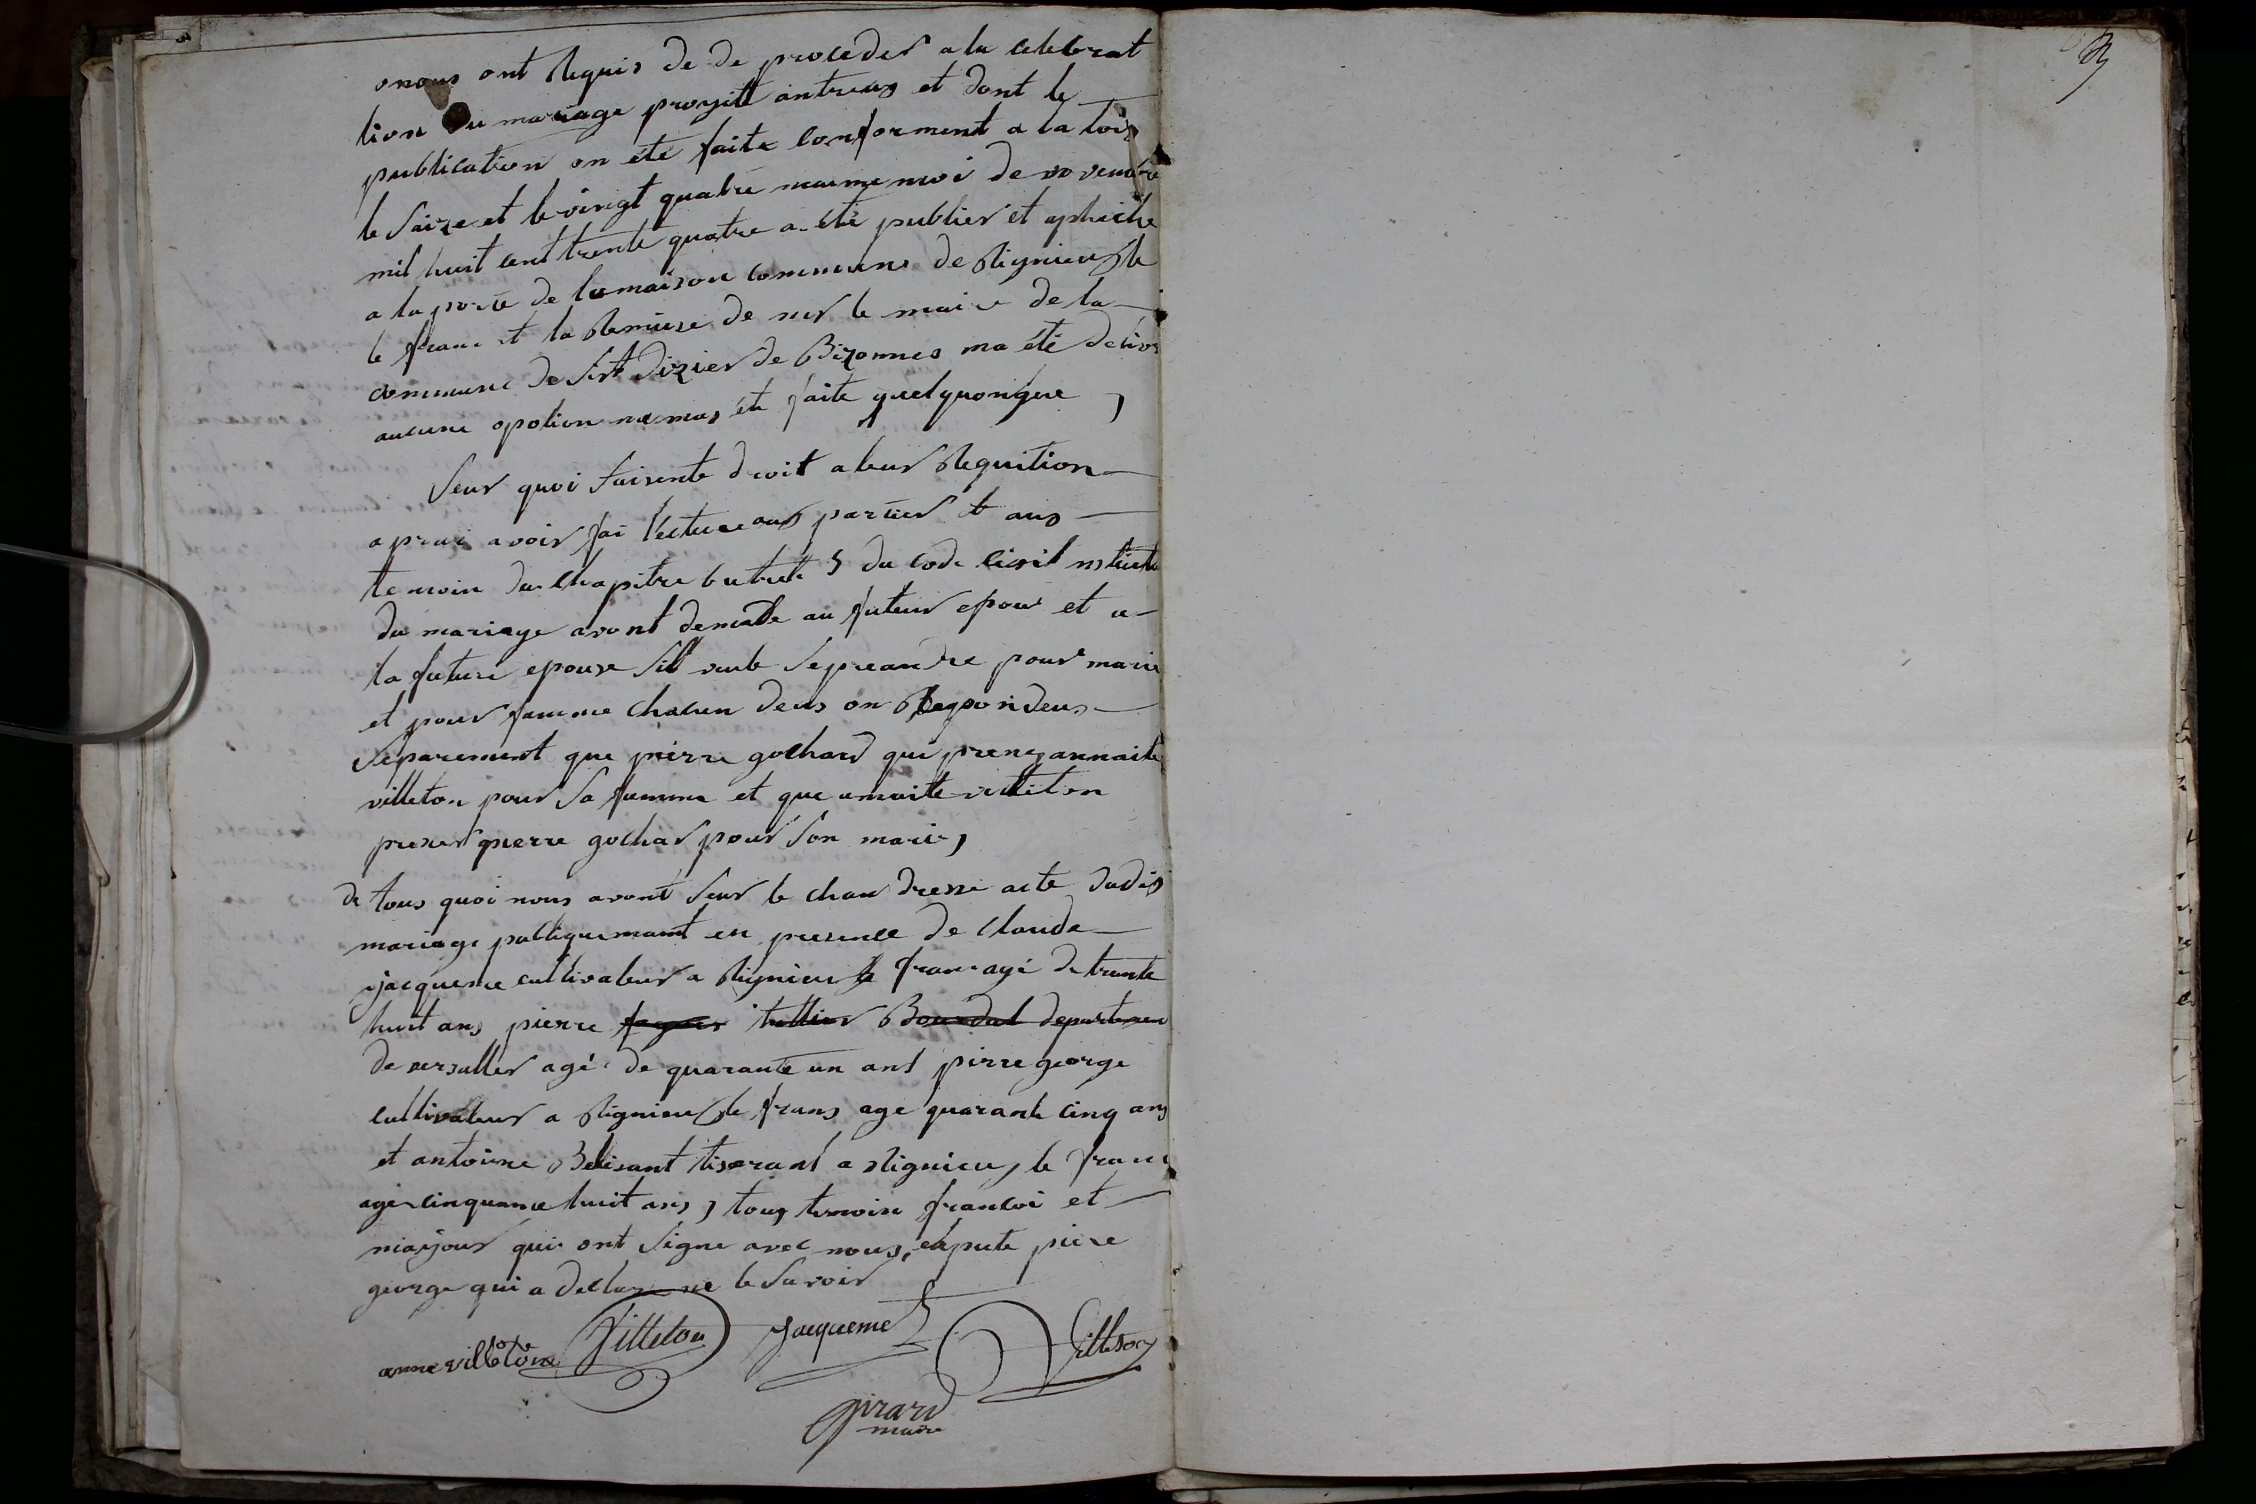 onous ont Requis de de proceder a la celebrat
tion du mariage proyite antreus et dont le
publication on éte faite conforment a la loi
le saize et le vingt quatre maime moi de novembre
mil huit cent trente quatre a été publier et aphiche
a la porte de la maison commune de Rignieu le
le franc et la Remise de mr le maire de la
commune de St Dizier de Bizonnes ma été delivr
aucune opotion ne mas éte faite quelquonque,
seur quoi faisente droit a leur Requition
aprai avoir fai lecture aus parties et aus
temoin du chapitre 6 du code civil
du mariage avont demade au futeur epous et a
la future epouse sil veule se preandre pour marie
et pour famme chacun deus on Reponideus
séparement que pierre gochard qui prenez annaite
villeton pour sa famme et que anaite villeton
prener pierre gochar pour son marie,
de tous quoi nous avont seur le chan dresse acte dudis
mariage publiquemant en presence de Claude
jacqueme cultivateur a Rignieu le franc agé de trante
huit ans pierre tullier Bourdal departemen
de versalles agé de quarante un ans pirre george
cultivateur a Rignieu le frans age quarante cinq ans
et antoine Belisant tiserant a Rignieu, le franc
agé cinquance huit ans, tous temoin francoi et
majour qui ont signe avec nous, exsepte piere
george qui a declare ne le savoir
anne villetone Villeton Jacquemet Villeton
girard
maire